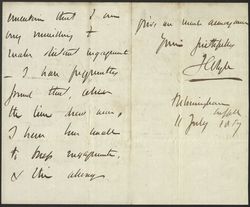 mention that I am
very unwilling to
make distant engagements
– I have frequently
found that, when
the time drew near,
I have been unable
to keep engagements,
& thus always
give as much annoyance
Yours faithfully
11 July